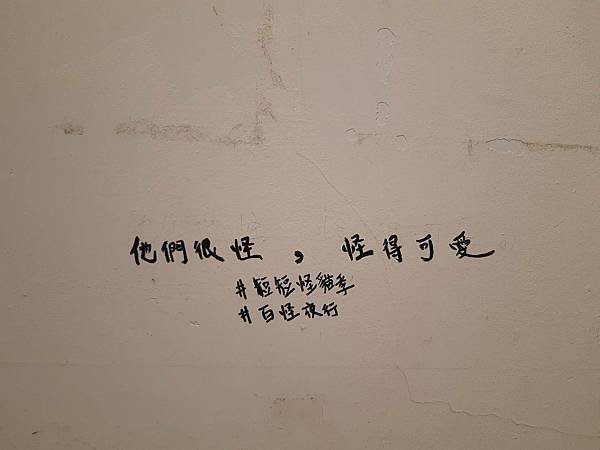 他們很怪，怪得可愛
#短短怪貓季
#百怪夜行